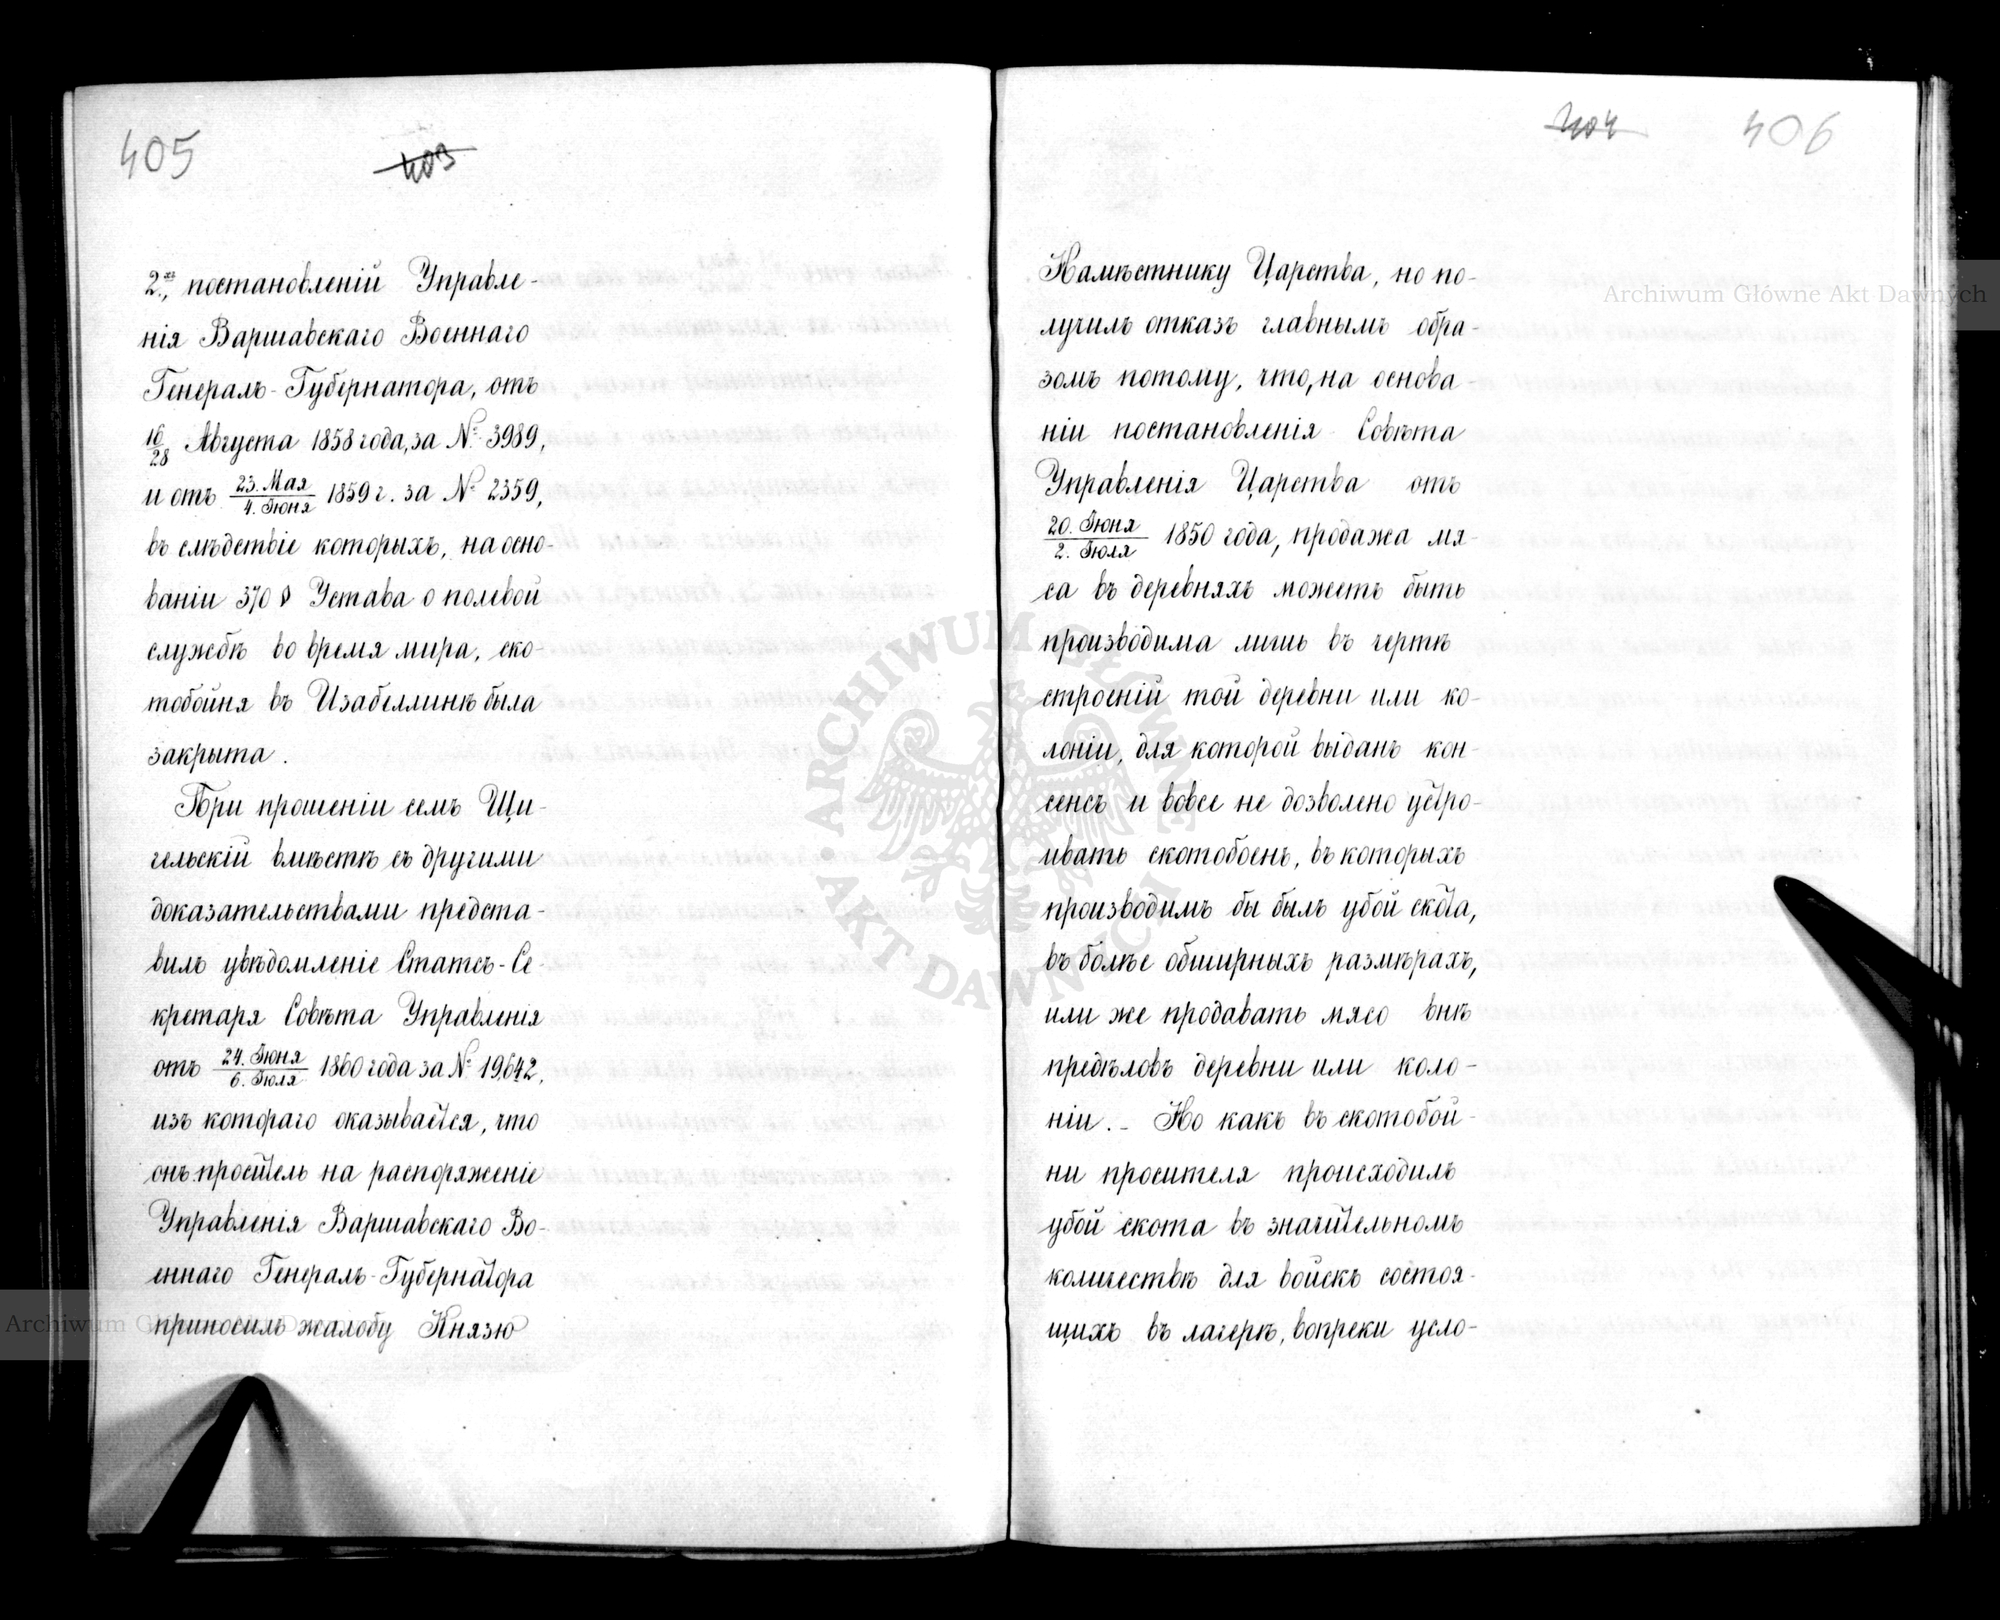 405
403
2.хъ постановленій Управле-
нія Варшавскаго Военнаго
Генералъ-Губернатора, отъ
16/28 Августа 1858 года, за № 3989,
и отъ 23. Мая/4. Іюня 1859 г. за № 2359,
въ слѣдствіе которыхъ, на осно-
ваніи 370 § Устава о полевой
службѣ во время мира, ско-
тобойня въ Изабеллинѣ была
закрыта.
При прошеніи семъ Щи-
гельскій вмѣстѣ съ другими
доказательствами предста-
вилъ увѣдомленіе Статсъ-Се-
кретаря Совѣта Управленія
отъ 24. Іюня/6. Іюля 1860 года за № 19,642,
изъ котораго оказывается, что
онъ проситель на распоряженіе
Управленія Варшавскаго Во-
еннаго Генералъ-Губернатора
приносилъ жалобу Князю
404
406
Намѣстнику Царства, но по-
лучилъ отказъ главнымъ обра-
зомъ потому, что, на основа-
ніи постановленія Совѣта
Управленія Царства отъ
20. Іюня/2. Іюля 1850 года, продажа мя-
са въ деревняхъ можетъ быть
производима лишь въ чертѣ
строеній той деревни или ко-
лоніи, для которой выданъ кон-
сенсъ и вовсе не дозволено устро-
ивать скотобоень, въ которыхъ
производимъ бы былъ убой скота,
въ болѣе обширныхъ размѣрахъ,
или же продавать мясо внѣ
предѣловъ деревни или коло-
ніи. - Но какъ въ скотобой-
ни просителя происходилъ
убой скота въ значительномъ
количествѣ для войскъ состоя-
щихъ въ лагерѣ, вопреки усло-
Archiwum Główne Akt Dawnych
ARCHIWUM GŁÓWNE AKT DAWNYCH
Archiwum Główne Akt Dawnych